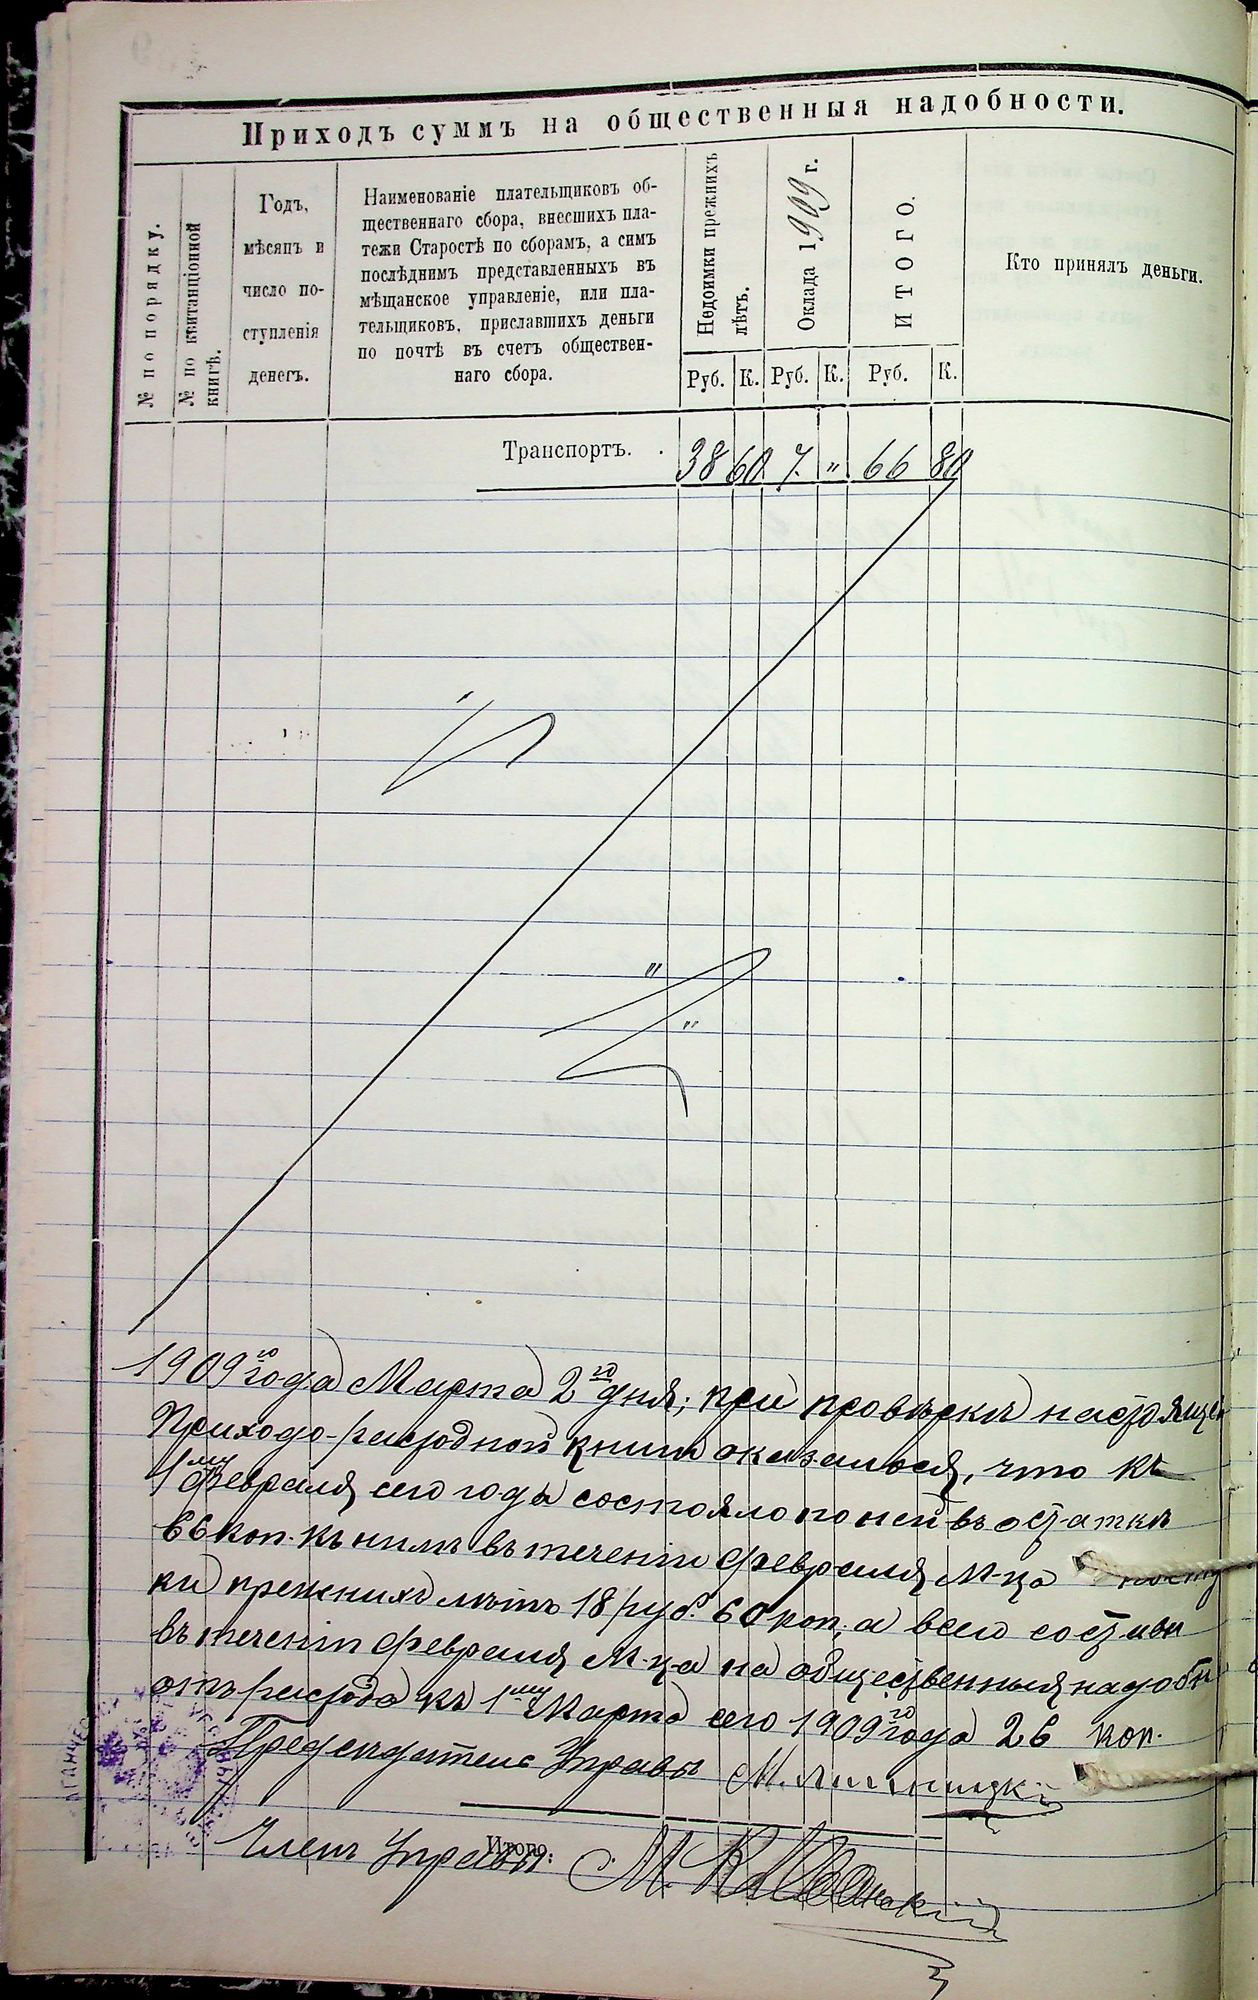 Приходъ суммъ на общественныя надобности.
№ по порядку.
№ по квитанціонной книгѣ.
Годъ,
мѣсяцъ и
число по-
ступленія
денегъ.
Наименованіе плательщиковъ об-
щественнаго сбора, внесшихъ пла-
тежи Старостѣ по сборамъ, а симъ
послѣднимъ представленныхъ въ
мѣщанское управленіе, или пла-
тельщиковъ, приславшихъ деньги
по почтѣ въ счетъ обществен-
наго сбора.
Недоимки прежнихъ лѣтъ.
Оклада 1909 г.
ИТОГО.
Кто принялъ деньги.
Руб. К. Руб. К. Руб. К.
Транспортъ. . 38 60 7. „ 66 80
1909го года Марта 2го дня; при провѣркѣ настоящей
Приходо-расходной книги оказалося, что къ
1му Февраля сего года состояло по ней въ остаткѣ
66 коп. къ нимъ въ теченіи Февраля М-ца
ки прежнихъ лѣтъ 18 руб. 60 коп; а всего состав
въ теченіи Февраля М-ца на общественныя надобн
отъ расхода къ 1му Марта сего 1909го года 26 коп.
Предсѣдатель Управы М.
Членъ Управы
Итого:
М.